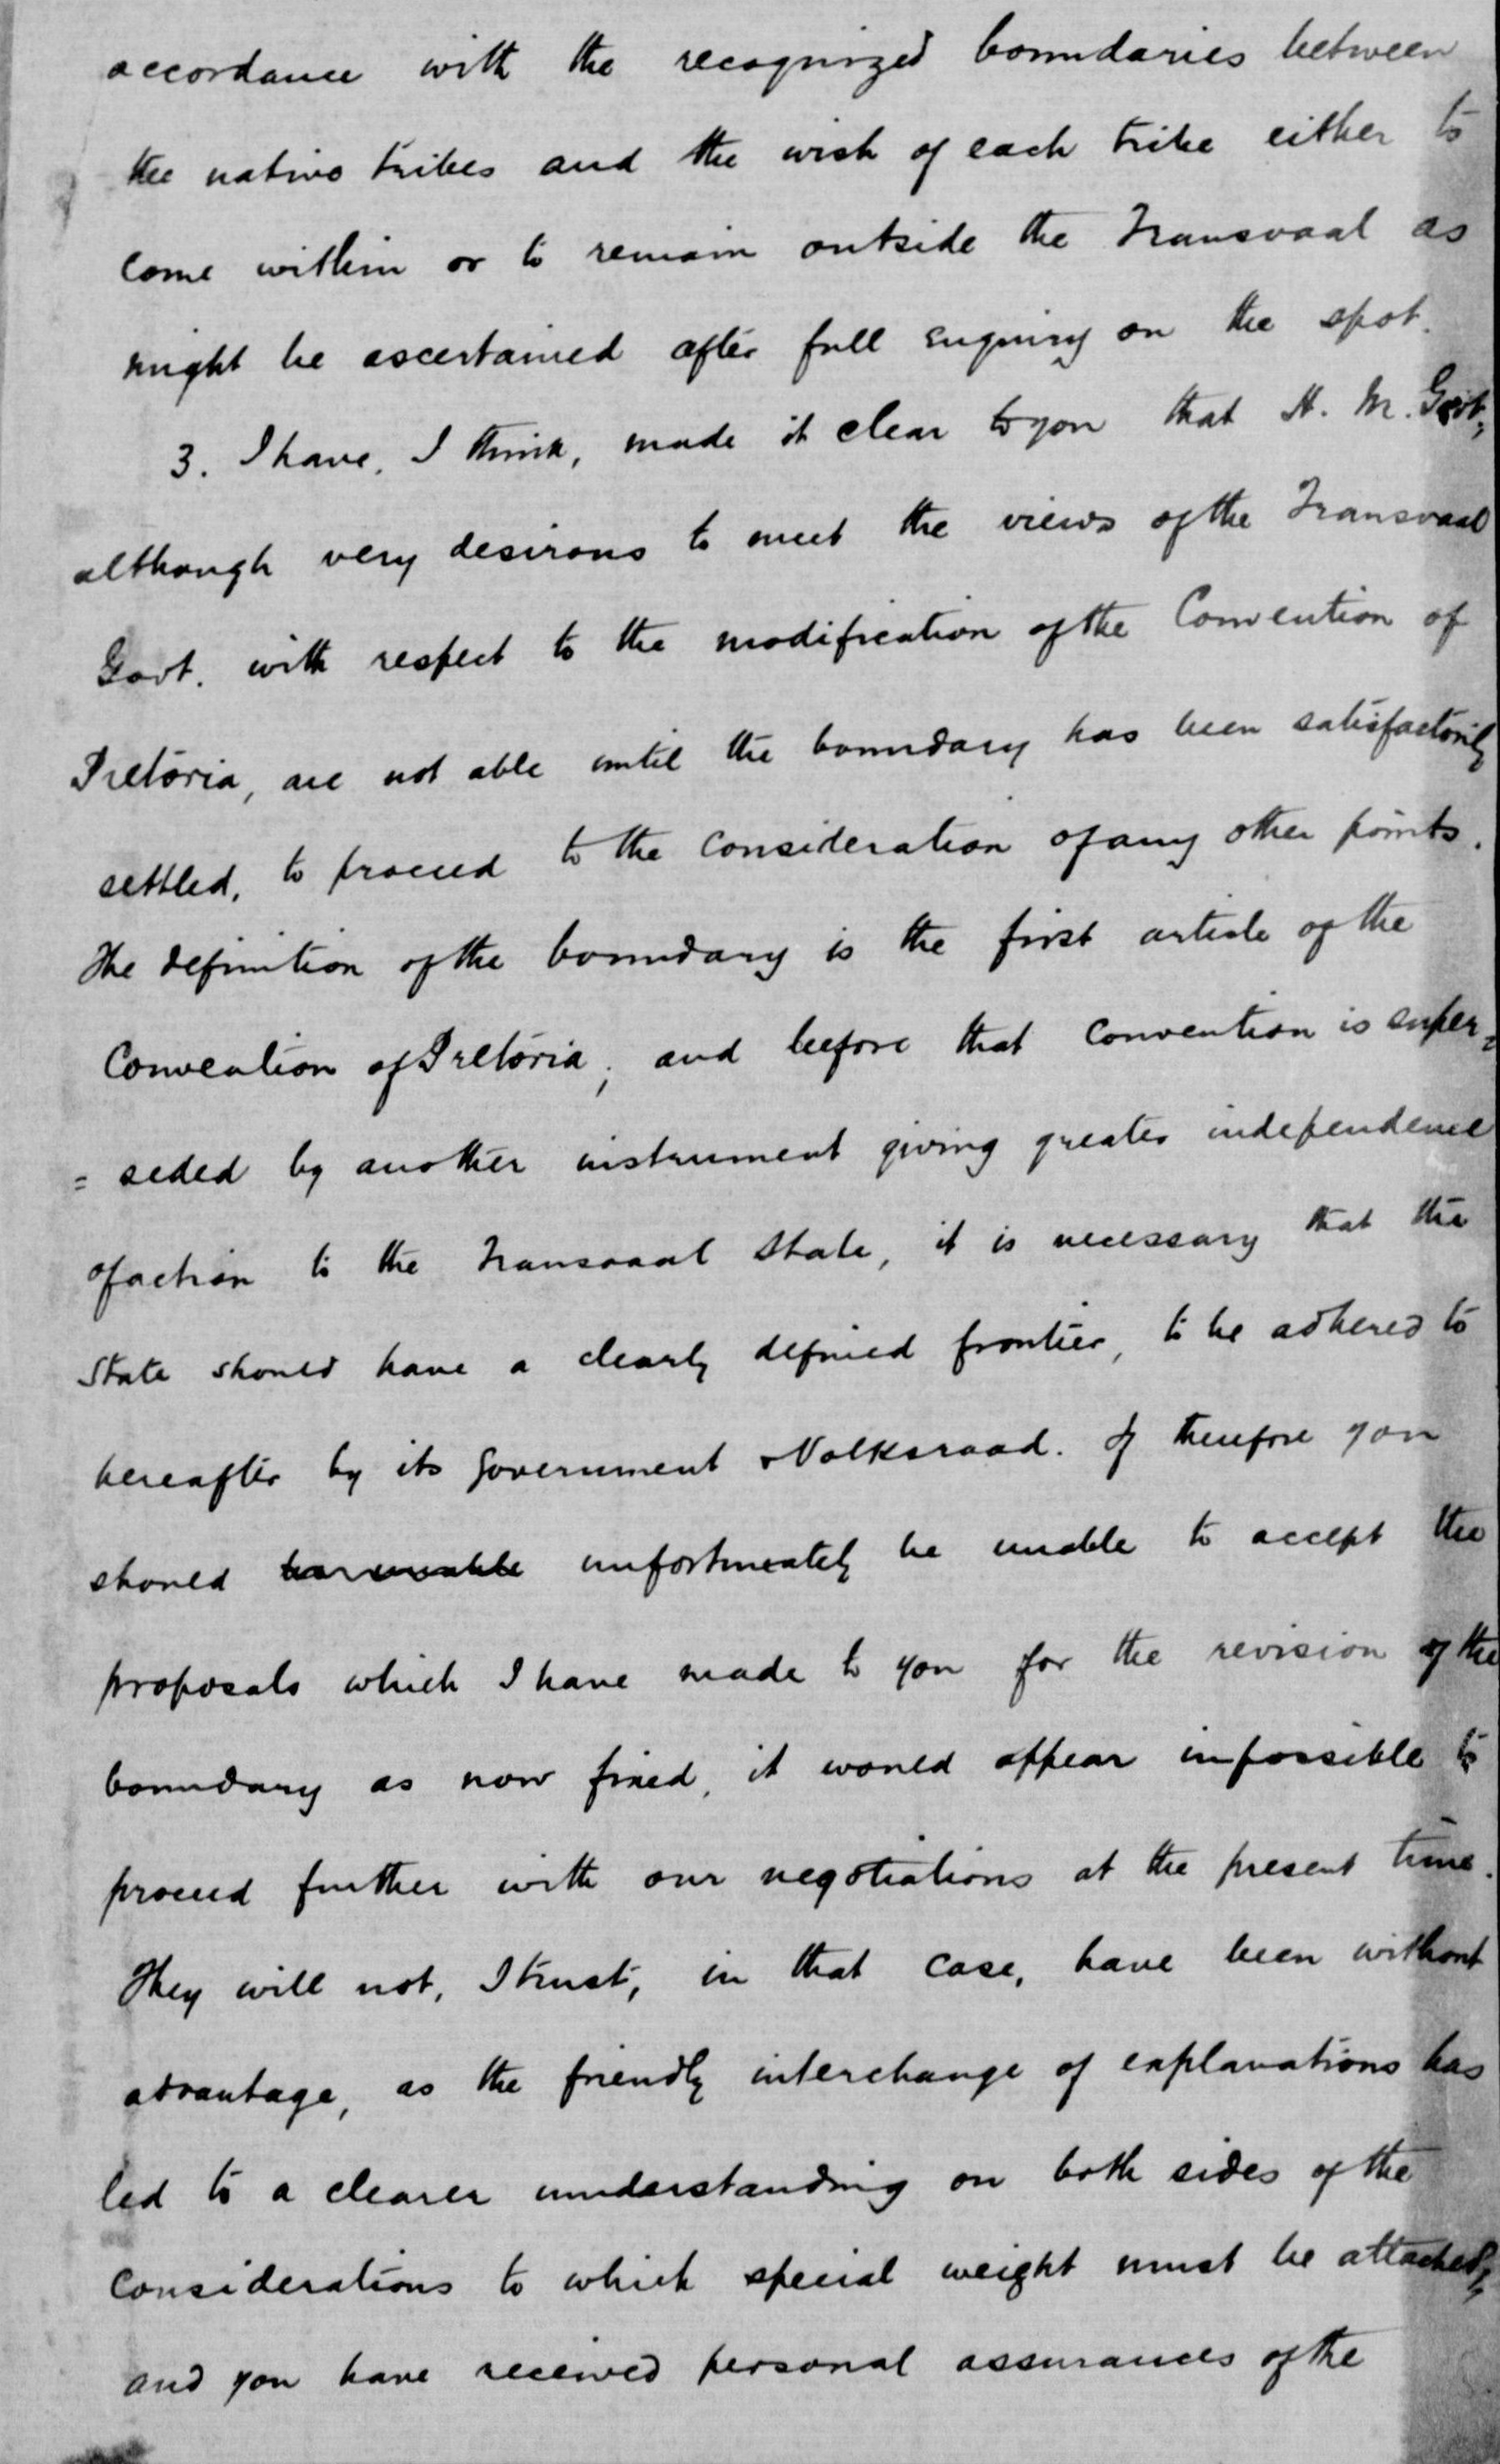 accordance with the recognized boundaries between
the native tribes and the wish of each tribe either to
come within or to remain outside the Transvaal as
might be ascertained after full enquiry on the spot.
3. I have, I think, made it clear to you that H. M. Govt,
although very desirous to meet the views of the Transvaal
Govt. with respect to the modification of the Convention of
Pretoria, are not able until the boundary has been satisfactorily
settled, to proceed to the consideration of any other points.
The definition of the boundary is the first article of the
Convention of Pretoria; and before that Convention is super=
=seded by another instrument giving greater independence
of action to the Transvaal State, it is necessary that the
State should have a clearly defined frontier, to be adhered to
hereafter by its Government & Volksraad. If therefore you
should unfortunately be unable to accept the
proposals which I have made to you for the revision of the
boundary as now fixed, it would appear impossible to
proceed further with our negotiations at the present time.
They will not, I trust, in that case, have been without
advantage, as the friendly interchange of explanations has
led to a clearer understanding on both sides of the
considerations to which special weight must be attached,
and you have received personal assurances of the